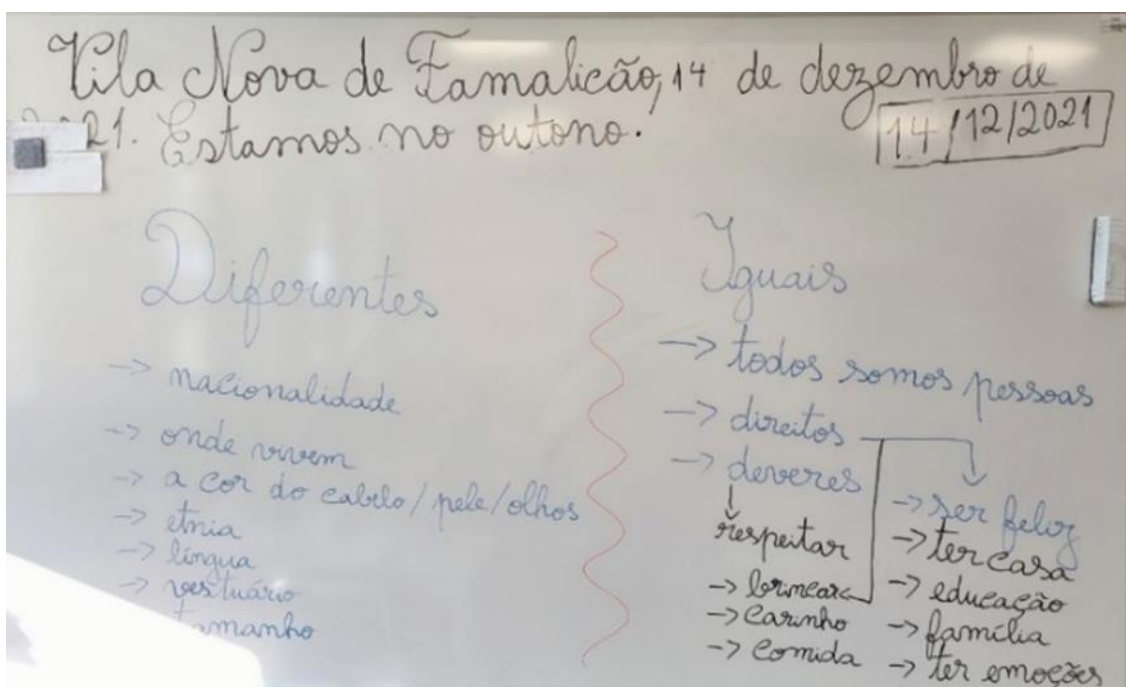 Vila Nova de Famalicão, 14 de dezembro de
2021. Estamos no outono.
14/12/2021
Diferentes
-> nacionalidade
-> onde vivem
-> a cor do cabelo/pele/olhos
-> etnia
-> língua
-> vestuário
tamanho
Iguais
-> todos somos pessoas
-> direitos
-> deveres
respeitar
-> brincar
-> carinho
-> comida
-> ser feliz
-> ter casa
-> educação
-> família
-> ter emoções